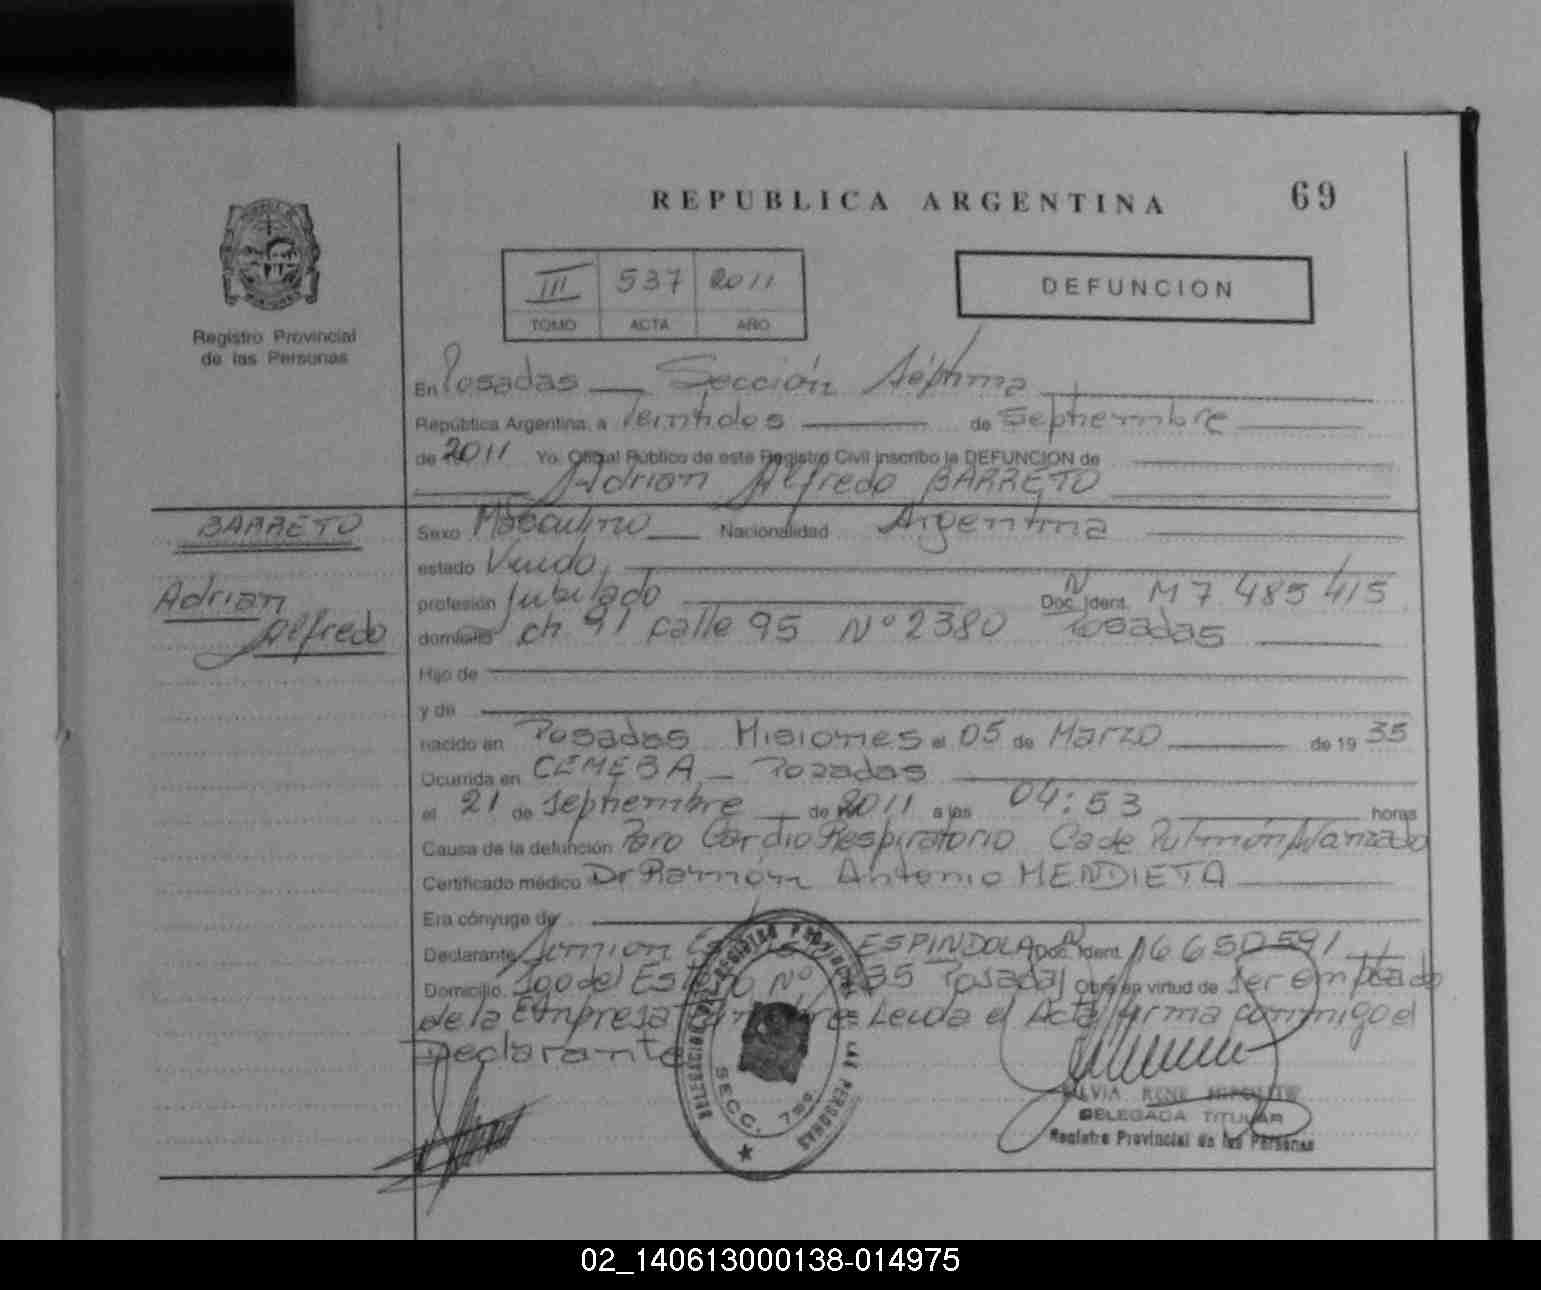 REPUBLICA ARGENTINA
69
III 537 2011
TOMO ACTA AÑO
DEFUNCION
Registro Provincial
de las Personas
En Posadas — Sección Séptima
República Argentina, a Veintidos de Septiembre
de 2011 Yo, Oficial Público de este Registro Civil inscribo la DEFUNCION de
Adrian Alfredo BARRETO
BARRETO
Adrian
Alfredo
Sexo Masculino Nacionalidad Argentina
estado Viudo
profesión Jubilado Doc. Ident. M 7.485.415
domicilio ch. 91 calle 95 Nº 2380 Posadas
Hijo de
y de
nacido en Posadas Misiones el 05 de Marzo de 19 35
Ocurrida en CEMEBA — Posadas
el 21 de Septiembre de 2011 a las 04:53 horas
Causa de la defunción Paro Cardio Respiratorio Ca de Pulmón Avanzado
Certificado médico Dr Ramón Antonio MENDIETA
Era cónyuge de
Declarante ESPINDOLA Doc. Ident. 16650591
Domicilio Sgo del Nº Posadas Obra en virtud de ser empleado
de la Empresa Leída el Acta firma conmigo el
Declarante
SECC. 7ma.
DELEGADA TITULAR
Registro Provincial de las Personas
02_140613000138-014975